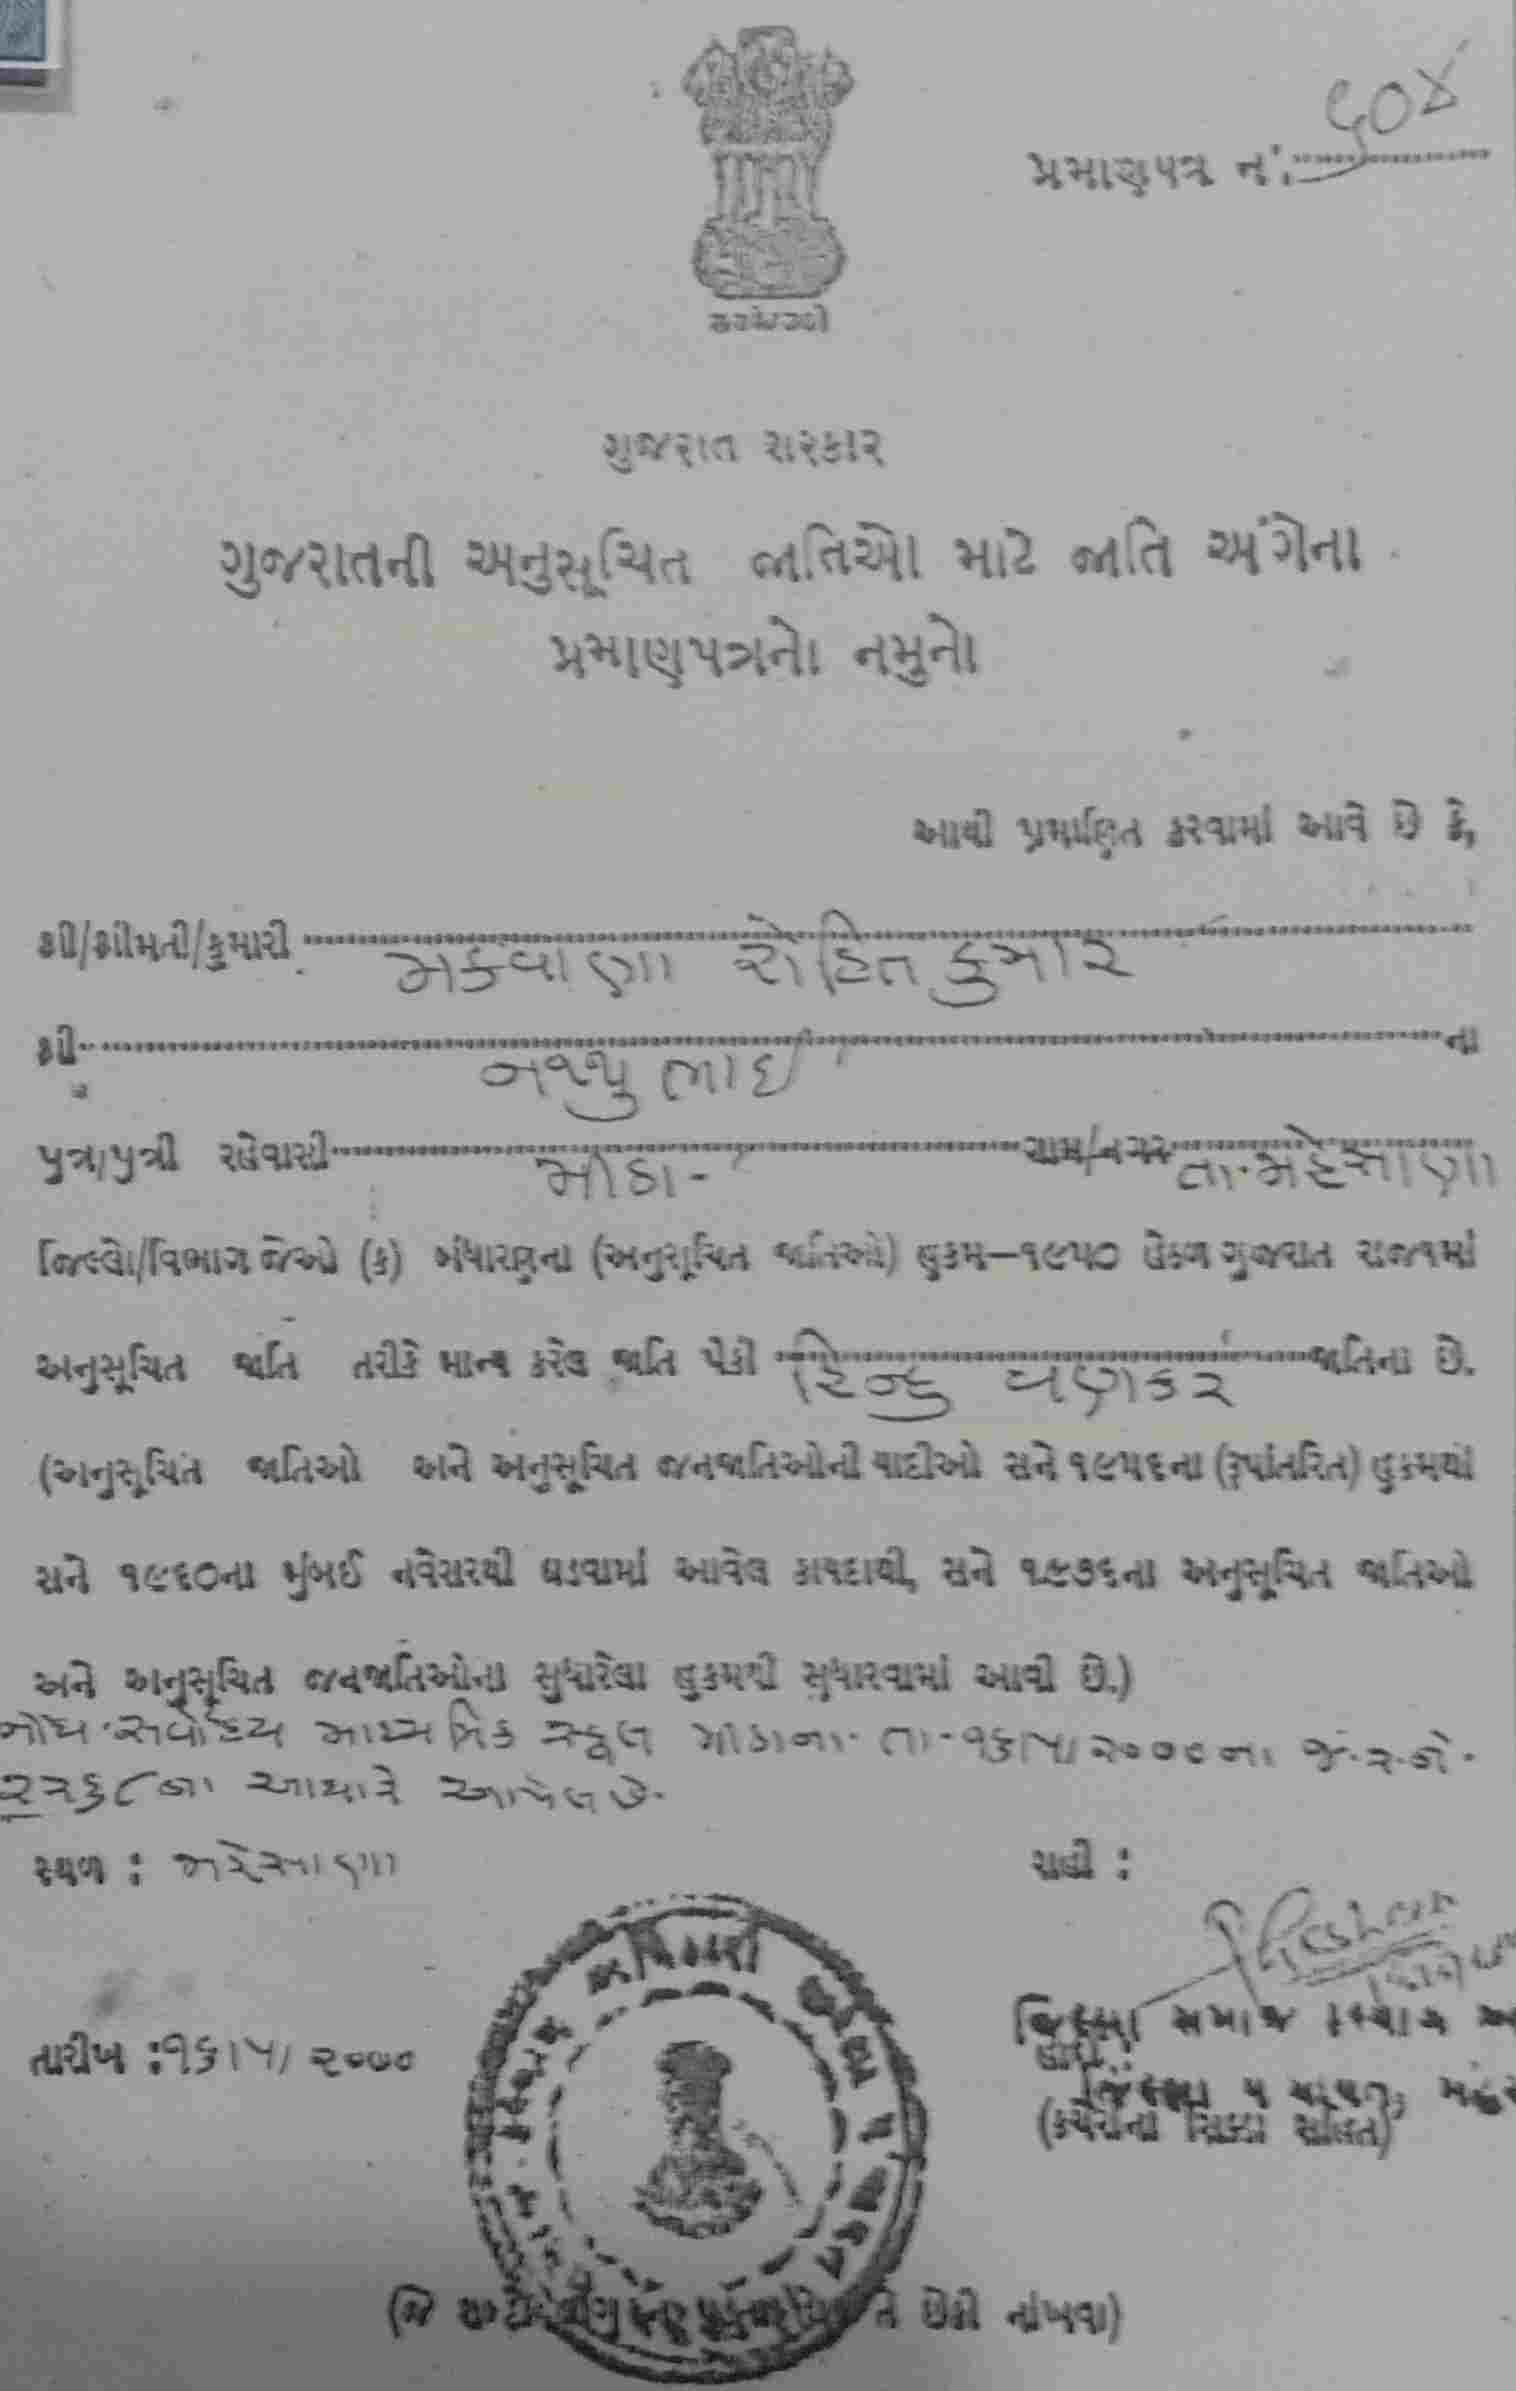 પ્રમાણપત્ર નં. ૬૦૪
ગુજરાત સરકાર
ગુજરાતની અનુસૂચિત જાતિઓ માટે જાતિ અંગેના
પ્રમાણપત્રનો નમુનો
આથી પ્રમાણિત કરવામાં આવે છે કે,
શ્રી/શ્રીમતી/કુમારી મકવાણા રોહિતકુમાર
શ્રી નથ્થુભાઈ ના
પુત્ર/પુત્રી રહેવાસી મીઠા ગામ/નગર તા. મહેસાણા
જિલ્લો/વિભાગ જેઓ (ક) બંધારણના (અનુસૂચિત જાતિઓ) હુકમ—૧૯૫૦ હેઠળ ગુજરાત રાજ્યમાં
અનુસૂચિત જાતિ તરીકે માન્ય કરેલ જાતિ પૈકી હિન્દુ વણકર જાતિના છે.
(અનુસૂચિત જાતિઓ અને અનુસૂચિત જનજાતિઓની યાદીઓ સને ૧૯૫૬ના (રૂપાંતરિત) હુકમથી
સને ૧૯૬૦ના મુંબઈ નવેસરથી ઘડવામાં આવેલ કાયદાથી, સને ૧૯૭૬ના અનુસૂચિત જાતિઓ
અને અનુસૂચિત જનજાતિઓના સુધારેલા હુકમથી સુધારવામાં આવી છે.)
નોંધ સર્વોદય માધ્યમિક સ્કૂલ મીઠાના તા-૧૬/૫/૨૦૦૦ના જ.ર.નં.
૨૨૬૮ના આધારે આપેલ છે.
સ્થળ : મહેસાણા
સહી :
તારીખ : ૧૬/૫/૨૦૦૦
જિલ્લા સમાજ કલ્યાણ
હોદ્દો
જિલ્લા પંચાયત,
(કચેરીના સિક્કા સહિત)
(જે તે છેકી નાંખવા)